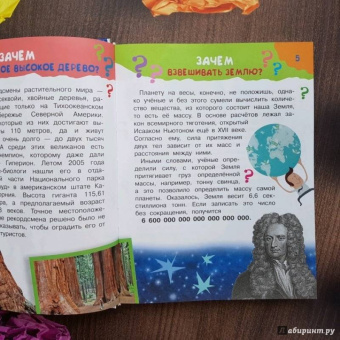 ЗАЧЕМ
ОЕ ВЫСОКОЕ ДЕРЕВО?
омены растительного мира —
еквойи, хвойные деревья, ра-
щие только на Тихоокеанском
режье Северной Америки.
ут 110 метров, да и живут
очень долго — до двух тысяч
А среди этих великанов есть
емпион, которому даже дали
Гиперион. Летом 2005 года
нашли в отдалённой ча-
Национального парка
уд» в американском штате Ка-
рния. Высота гиганта 115,61
а предполагаемый возраст
00 лет. Точное местоположе-
рекордсмена решено было не
казывать, чтобы оградить его от
туристов.
ЗАЧЕМ
ВЗВЕШИВАТЬ ЗЕМЛЮ?
5
Планету на весы, конечно, не положишь, одна-
ко учёные и без этого сумели вычислить количес-
тво вещества, из которого состоит наша Земля,
то есть её массу. В основе расчётов лежал за-
кон всемирного тяготения, открытый
Исааком Ньютоном ещё в XVII веке.
Согласно ему, сила притяжения
двух тел зависит от их масс и
расстояния между ними.
Иными словами, учёные опре-
делили силу, с которой Земля
притягивает груз определённой
массы, например, тонну свинца,
а это позволило определить массу самой
планеты. Оказалось, Земля весит 6,6 сек-
стиллиона тонн. Если записать это число
без сокращения, получится
6 600 000 000 000 000 000 000.
Лабиринт.ру